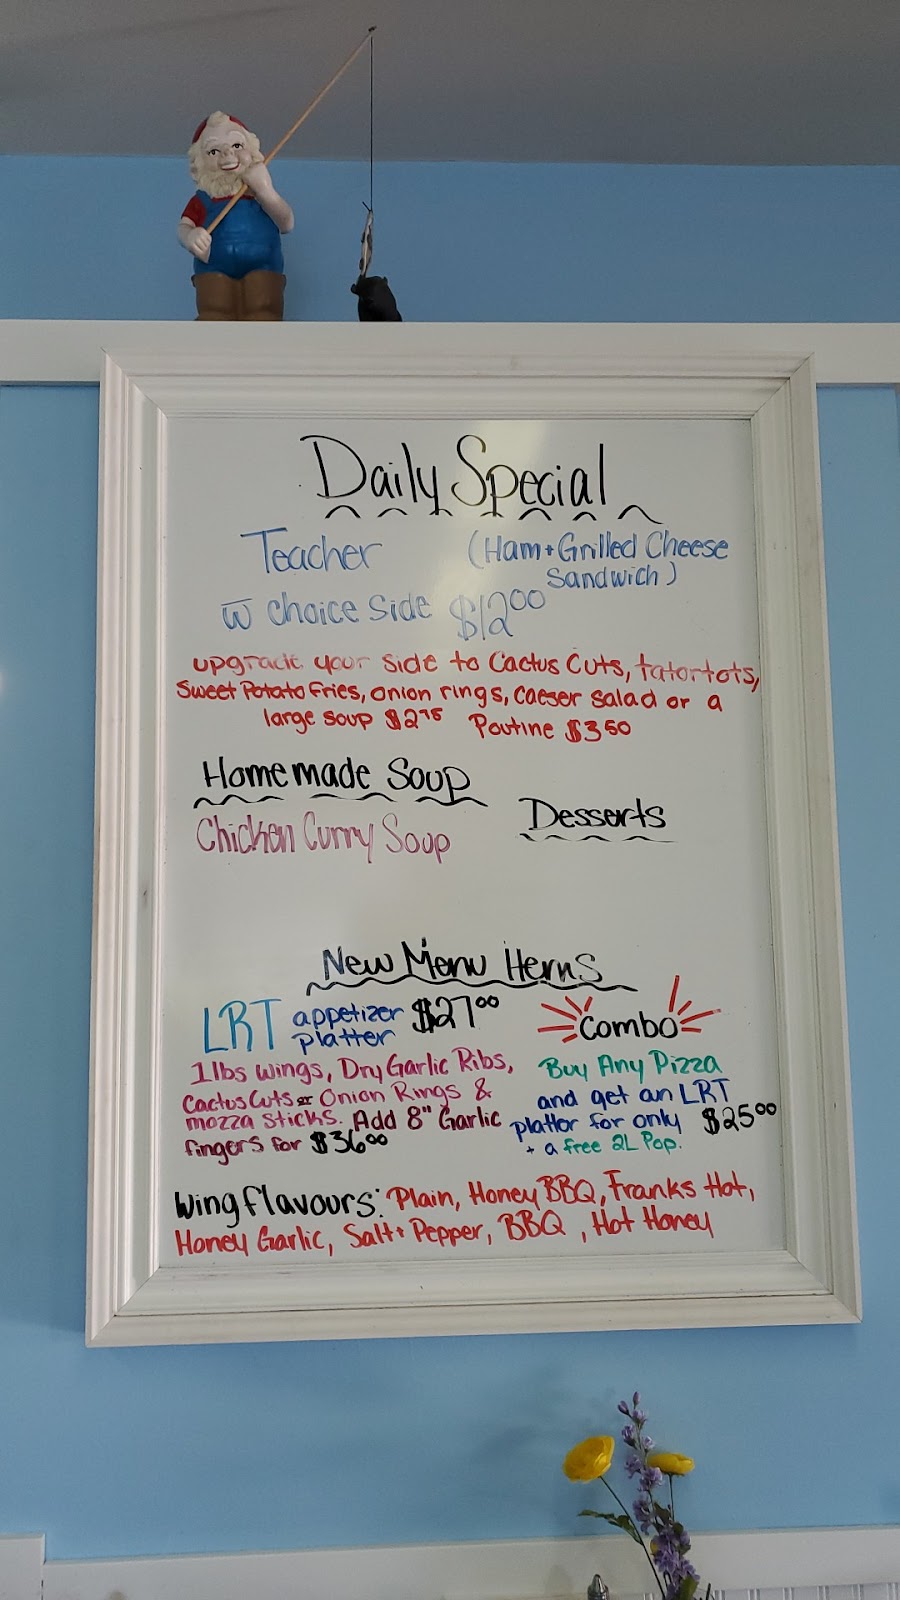 Daily Special
Teacher (Ham + Grilled Cheese
Sandwich)
w̅ choice side $12.00
upgrade your side to Cactus Cuts, tatortots,
Sweet Potato Fries, onion rings, caeser salad or a
large soup $2.75 Poutine $3.50
Homemade Soup
Desserts
Chicken Curry Soup
New Menu Items
LRT appetizer platter $27.00
1lbs wings, Dry Garlic Ribs,
Cactus Cuts or Onion Rings &
mozza sticks. Add 8" Garlic
fingers for $36.00
Combo
Buy Any Pizza
and get an LRT
platter for only $25.00
+ a free 2L Pop.
Wing flavours: Plain, Honey BBQ, Franks Hot,
Honey Garlic, Salt + Pepper, BBQ, Hot Honey